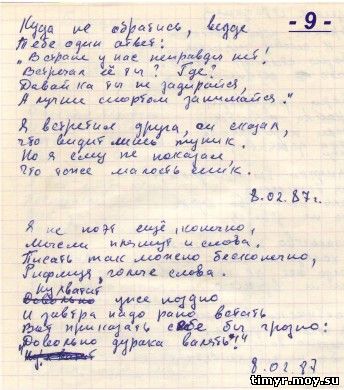 - 9 -
Куда не обратись, везде
Тебе один ответ:
"В стране у нас неправды нет!
Встречал её ты? Где?
Давай ка ты не задирайся,
А лучше спортом занимайся."
Я встретил друга, он сказал,
что видит лишь тупик.
Но я ему не показал,
Что тоже малость сник.
8.02.87г.
Я не поэт ещё, конечно,
Мысли прячут и слова.
Писать так можно бесконечно,
Рифмуя, голые слова.
Ну хватит
Довольно уже поздно
И завтра надо рано встать
Вот приказать себе бы грозно:
"Довольно дурака валять!"
8.02.87
timyr.moy.su